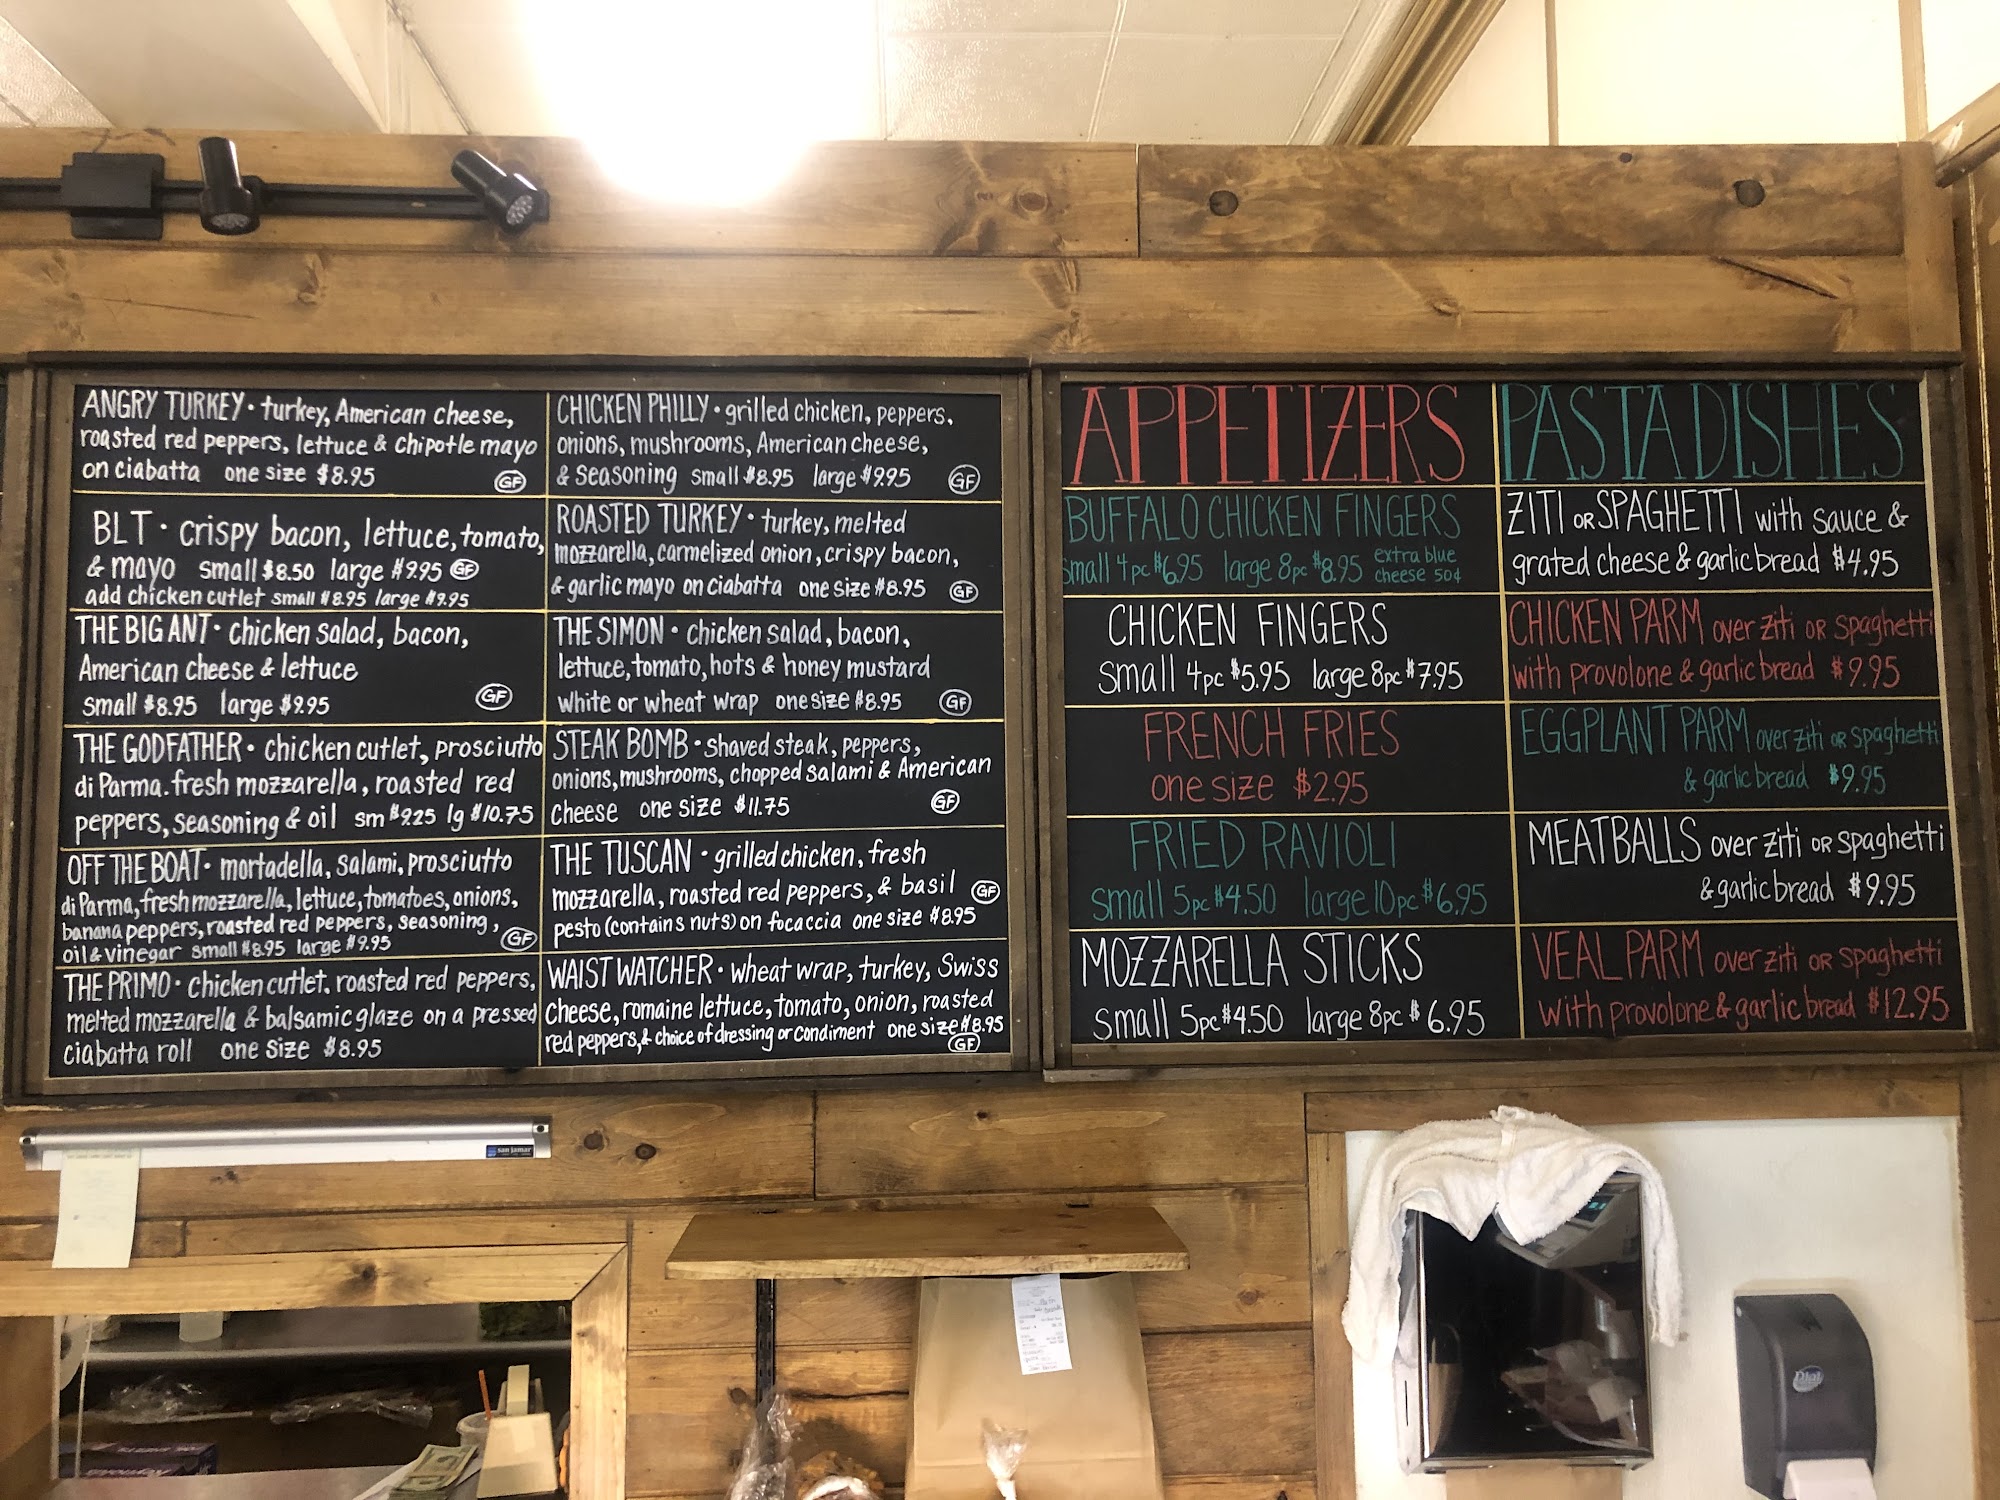 ANGRY TURKEY • turkey, American cheese,
roasted red peppers, lettuce & chipotle mayo
on ciabatta one size $8.95 GF
BLT • crispy bacon, lettuce, tomato,
& mayo small $8.50 large $9.95 GF
add chicken cutlet small $8.95 large $9.95
THE BIG ANT • chicken salad, bacon,
American cheese & lettuce
small $8.95 large $9.95 GF
THE GODFATHER • chicken cutlet, prosciutto
di Parma. fresh mozzarella, roasted red
peppers, seasoning & oil sm $9.25 lg $10.75
OFF THE BOAT • mortadella, salami, prosciutto
di Parma, fresh mozzarella, lettuce, tomatoes, onions,
banana peppers, roasted red peppers, seasoning,
oil & vinegar small $8.95 large $9.95 GF
THE PRIMO • chicken cutlet. roasted red peppers,
melted mozzarella & balsamic glaze on a pressed
ciabatta roll one size $8.95
CHICKEN PHILLY • grilled chicken, peppers,
onions, mushrooms, American cheese,
& seasoning small $8.95 large $9.95 GF
ROASTED TURKEY • turkey, melted
mozzarella, carmelized onion, crispy bacon,
& garlic mayo on ciabatta one size $8.95 GF
THE SIMON • chicken salad, bacon,
lettuce, tomato, hots & honey mustard
white or wheat wrap one size $8.95 GF
STEAK BOMB • shaved steak, peppers,
onions, mushrooms, chopped salami & American
cheese one size $11.75 GF
THE TUSCAN • grilled chicken, fresh
mozzarella, roasted red peppers, & basil GF
pesto (contains nuts) on focaccia one size $8.95
WAIST WATCHER • wheat wrap, turkey, Swiss
cheese, romaine lettuce, tomato, onion, roasted
red peppers, & choice of dressing or condiment one size $8.95
GF
APPETIZERS
BUFFALO CHICKEN FINGERS
small 4pc $6.95 large 8pc $8.95 extra blue
cheese 50¢
CHICKEN FINGERS
small 4pc $5.95 large 8pc $7.95
FRENCH FRIES
one size $2.95
FRIED RAVIOLI
small 5pc $4.50 large 10pc $6.95
MOZZARELLA STICKS
small 5pc $4.50 large 8pc $6.95
PASTA DISHES
ZITI OR SPAGHETTI with sauce &
grated cheese & garlic bread $4.95
CHICKEN PARM over ziti OR spaghetti
with provolone & garlic bread $9.95
EGGPLANT PARM over ziti OR spaghetti
& garlic bread $9.95
MEATBALLS over ziti OR spaghetti
& garlic bread $9.95
VEAL PARM over ziti OR spaghetti
with provolone & garlic bread $12.95
san jamar
Dial